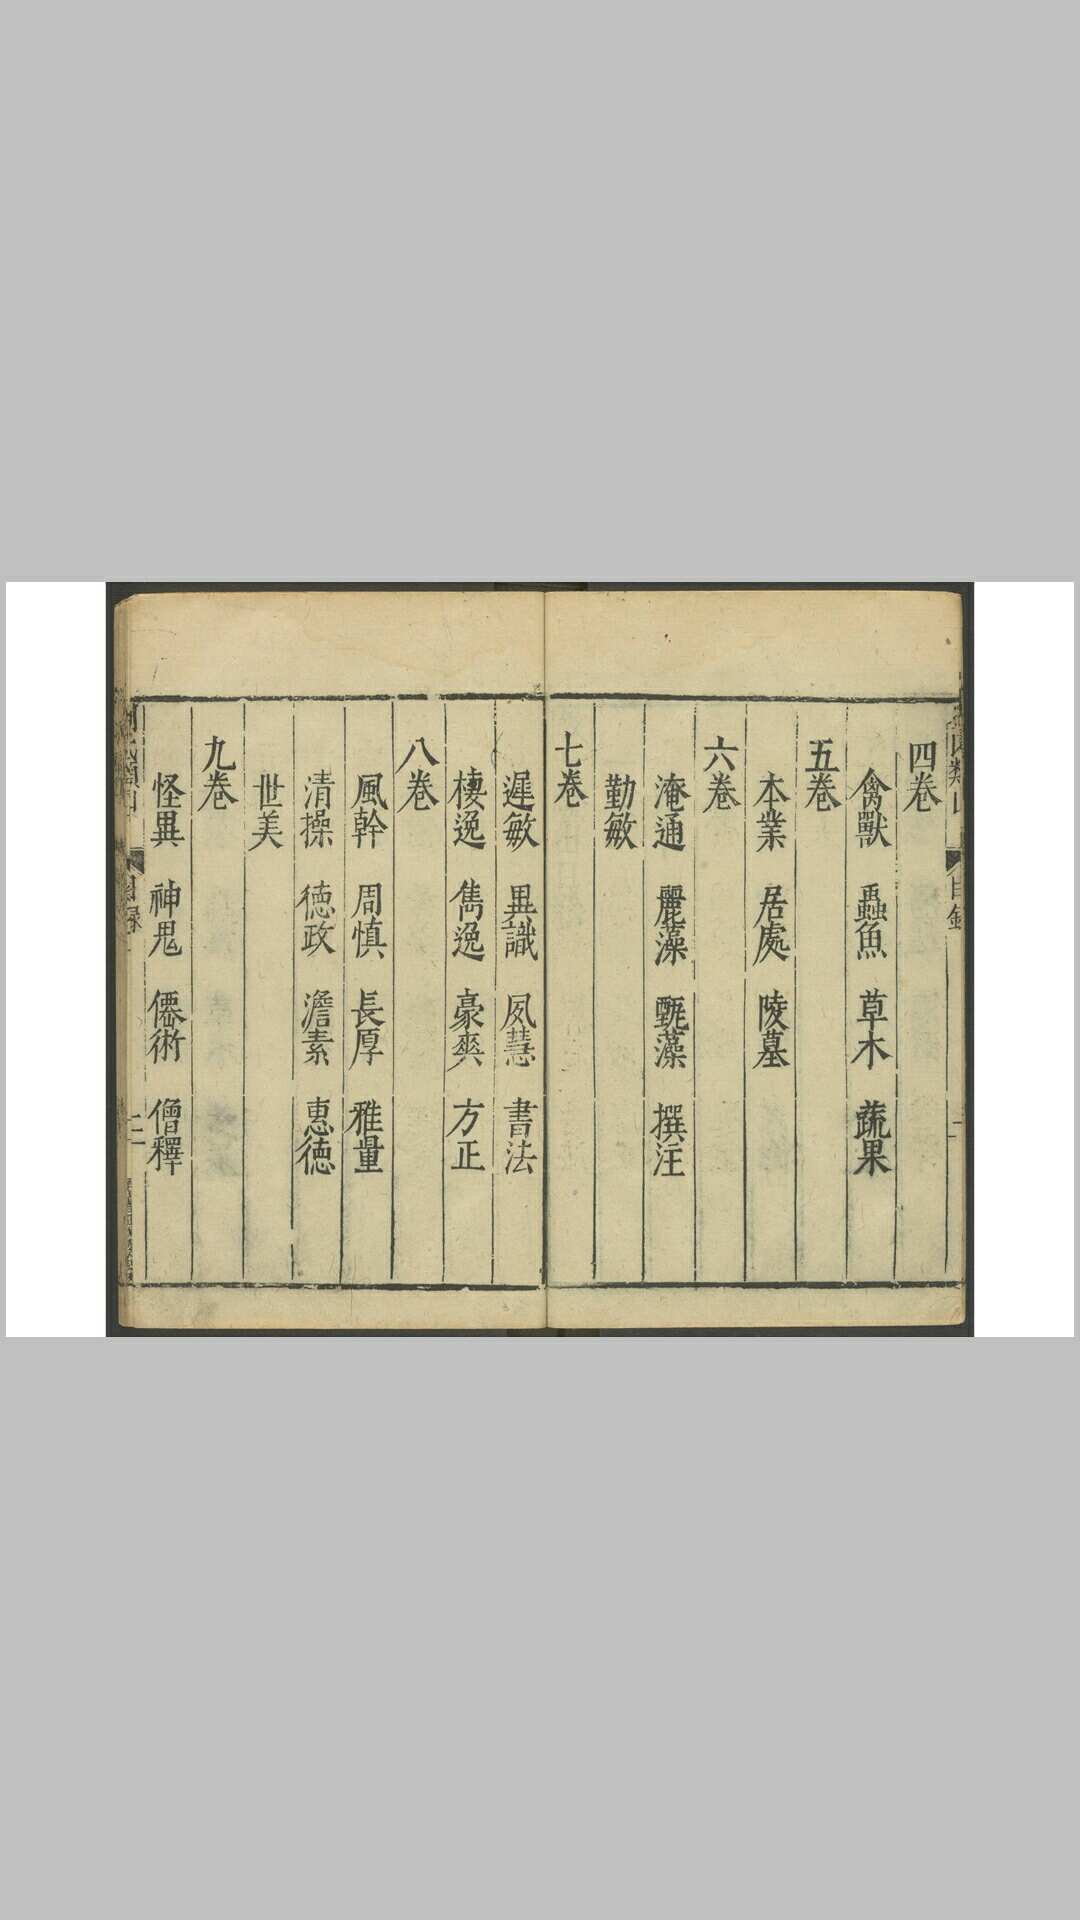 四卷
禽獸 蟲魚 草木 蔬果
五卷
本業 居處 陵墓
六卷
淹通 麗藻 甄藻 撰注
勤敏
七卷
遲敏 異識 夙慧 書法
棲逸 雋逸 豪爽 方正
八卷
風幹 周慎 長厚 雅量
清操 德政 澹素 惠德
世美
九卷
怪異 神鬼 僊術 僧釋
目錄